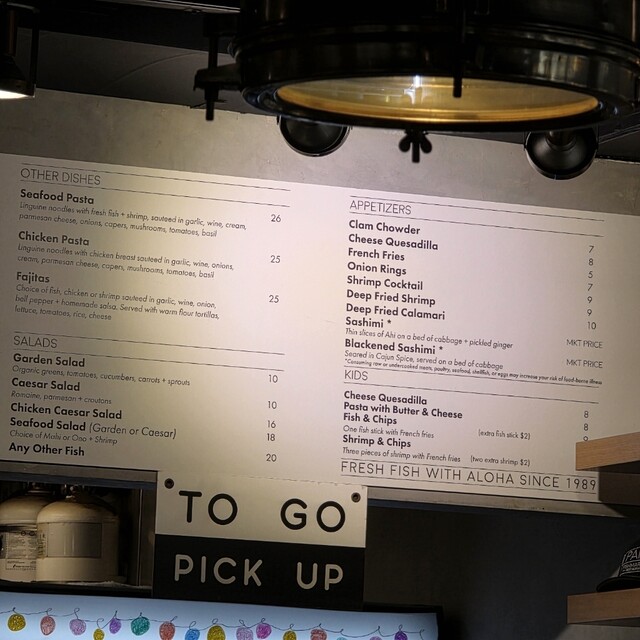 OTHER DISHES
Seafood Pasta 26
Linguine noodles with fresh fish + shrimp, sauteed in garlic, wine, cream,
parmesan cheese, onions, capers, mushrooms, tomatoes, basil
Chicken Pasta 25
Linguine noodles with chicken breast sauteed in garlic, wine, onions,
cream, parmesan cheese, capers, mushrooms, tomatoes, basil
Fajitas 25
Choice of fish, chicken or shrimp sauteed in garlic, wine, onion,
bell pepper + homemade salsa. Served with warm flour tortillas,
lettuce, tomatoes, rice, cheese
SALADS
Garden Salad 10
Organic greens, tomatoes, cucumbers, carrots + sprouts
Caesar Salad 10
Romaine, parmesan + croutons
Chicken Caesar Salad 16
Seafood Salad (Garden or Caesar) 18
Choice of Mahi or Ono + Shrimp
Any Other Fish 20
APPETIZERS
Clam Chowder 7
Cheese Quesadilla 8
French Fries 5
Onion Rings 7
Shrimp Cocktail 9
Deep Fried Shrimp 9
Deep Fried Calamari 10
Sashimi * MKT PRICE
Thin slices of Ahi on a bed of cabbage + pickled ginger
Blackened Sashimi * MKT PRICE
Seared in Cajun Spice, served on a bed of cabbage
*Consuming raw or undercooked meats, poultry, seafood, shellfish, or eggs may increase your risk of food-borne illness
KIDS
Cheese Quesadilla 8
Pasta with Butter & Cheese 8
Fish & Chips 9
One fish stick with French fries (extra fish stick $2)
Shrimp & Chips
Three pieces of shrimp with French fries (two extra shrimp $2)
FRESH FISH WITH ALOHA SINCE 1989
TO GO
PICK UP